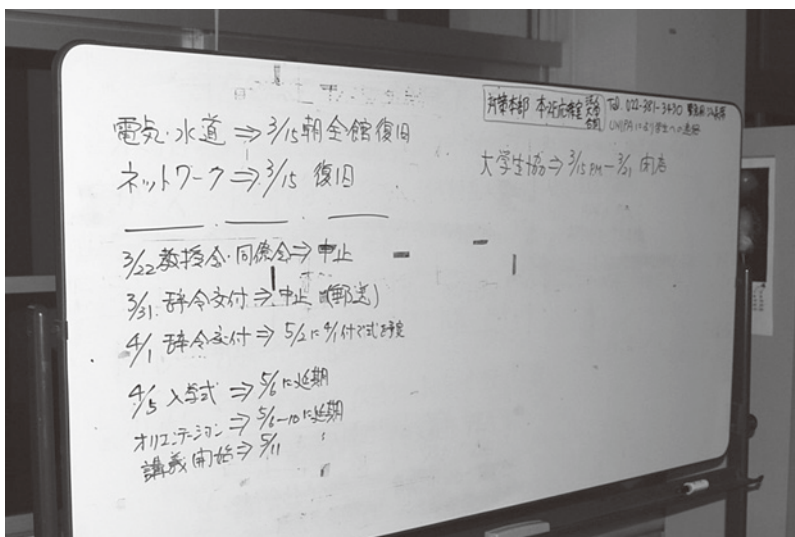 電気・水道⇒3/15朝全館復旧
ネットワーク⇒3/15 復旧
3/22 教授会・同僚会⇒中止
3/31 辞令交付⇒中止(郵送)
4/1 辞令交付⇒5/2に4/1付で式を予定
4/5 入学式⇒5/6に延期
オリエンテーション⇒5/6-10に延期
講義開始⇒5/11
対策本部 本部応接室 Tel. 022-381-3430
UNIPAにより学生への連絡
大学生協⇒3/15 PM-3/21 閉店